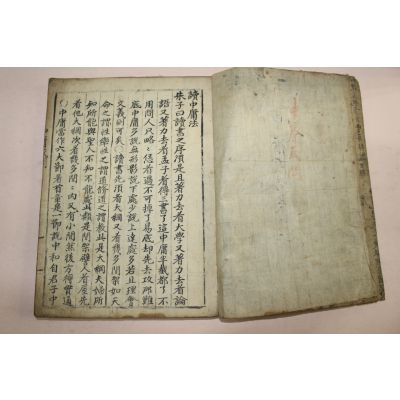 讀中庸法
朱子曰讀書之序須是且著力去看大學又著力去看論
語又著力去看孟子看得三書了這中庸半截都了不
用問人只略〻恁看過不可掉了易底却先去攻那難
底中庸多說無形影說下處少說上達處多若且理會
文義則可矣○讀書先須看大綱又看幾多間架如天
命之謂性率性之謂道修道之謂教此是大綱夫婦所
知所能與聖人不知不能處此類是間架譬人看屋先
看他大綱次看幾多間〻內又有小間然後方得貫通
○中庸當作六大節看首章是一節說中和自君子中